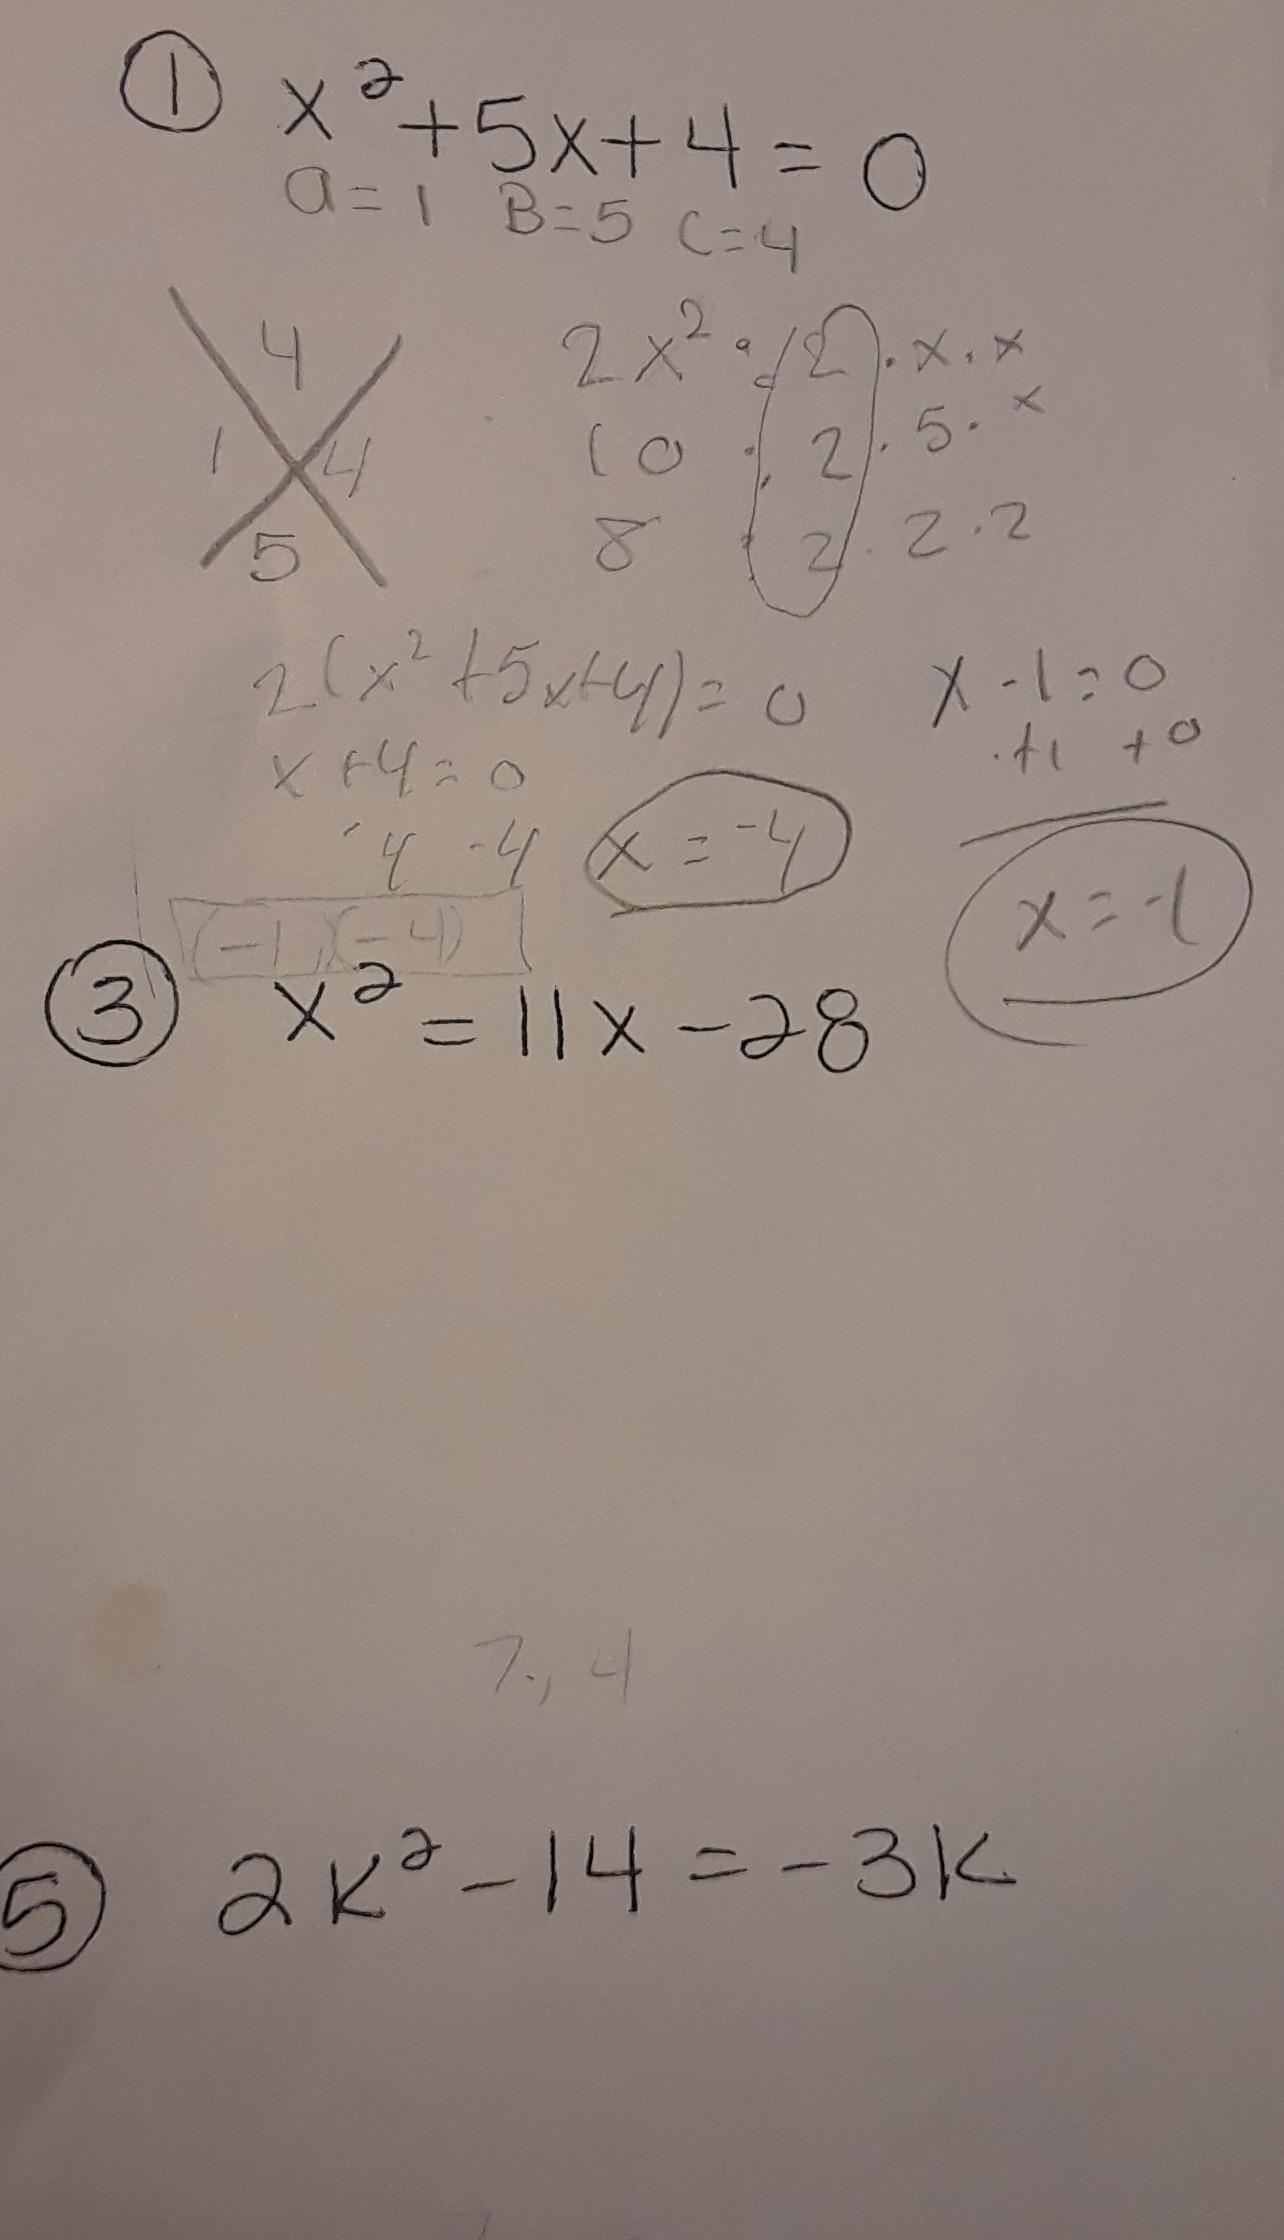 ① x² + 5x + 4 = 0
a = 1 B = 5 C = 4
4
1 4
5
2x² : 2 · x · x
10 : 2 · 5 · x
8 : 2 · 2 · 2
2(x² + 5x + 4) = 0
x + 4 = 0
-4 -4
x = -4
x - 1 = 0
+1 +0
x = -1
(-1,)(-4)
③ x² = 11x - 28
7, 4
⑤ 2k² - 14 = -3k